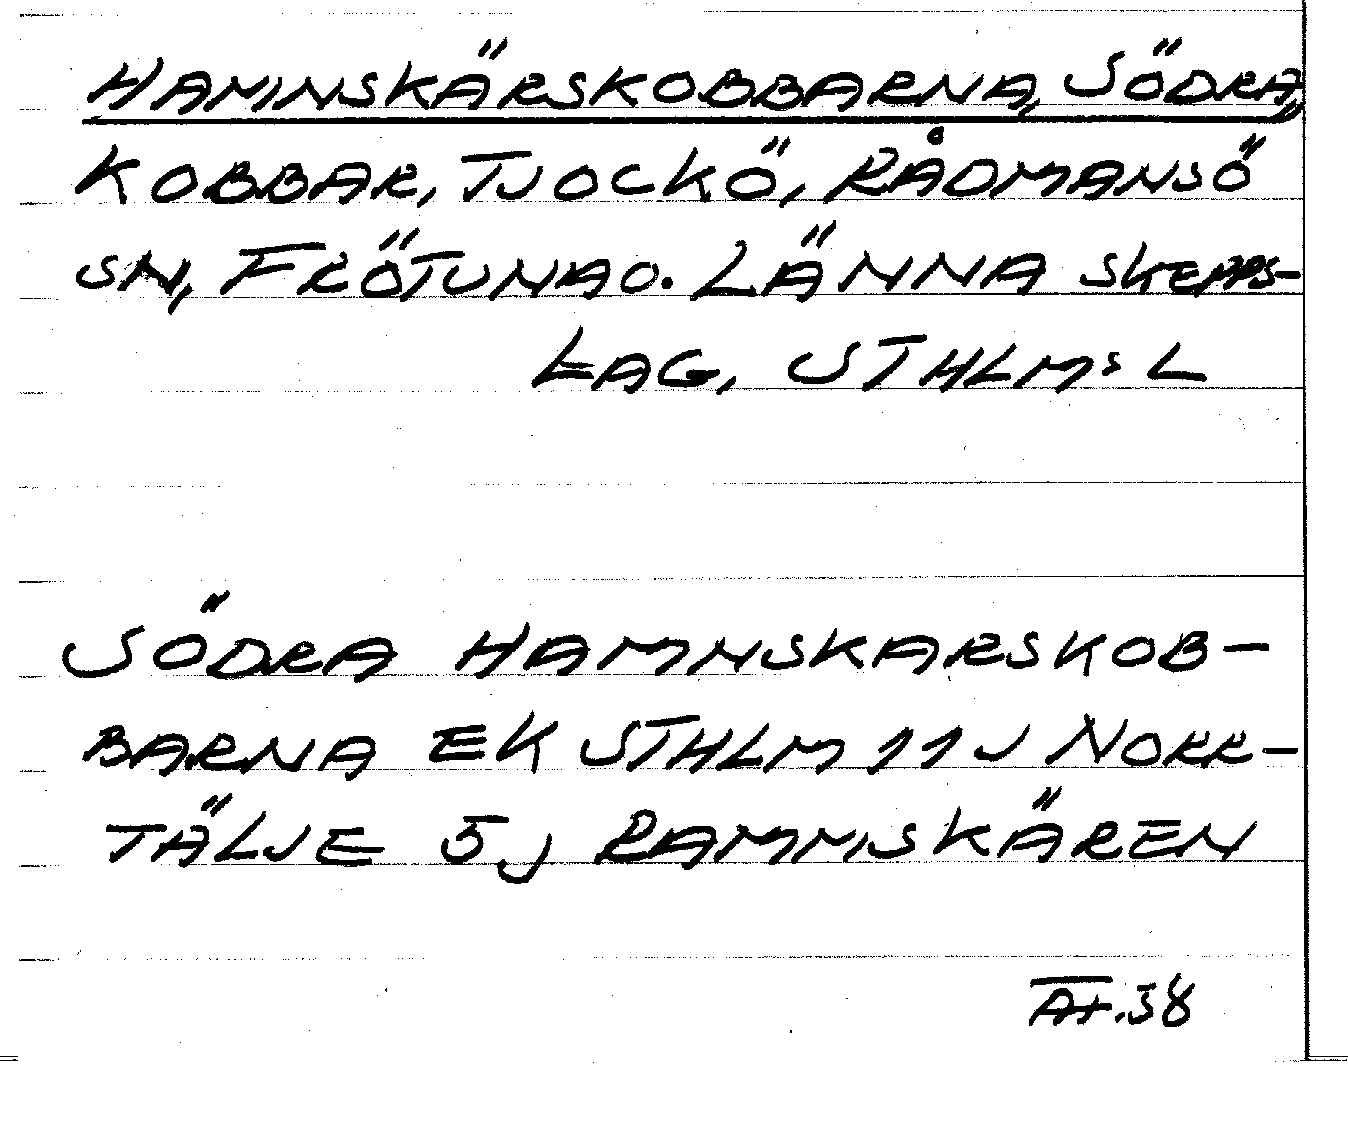 HAMNSKÄRSKOBBARNA, SÖDRA,
KOBBAR, TJOCKÖ, RÅDMANSÖ
SN, FRÖTUNA O. LÄNNA SKEPPS-
LAG, STHLMS L
SÖDRA HAMNSKARSKOB-
BARNA EK STHLM 11 J NORR-
TÄLJE 5j RAMMSKÄREN
38